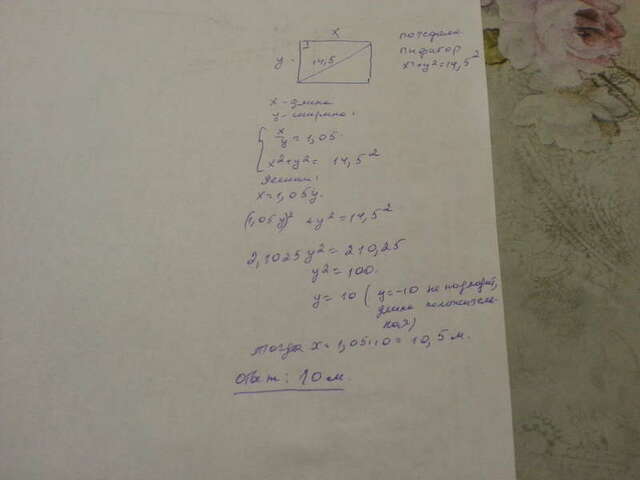 x
y
14,5
по теореме
Пифагор
x²+y²=14,5²
x - длина
y - ширина.
x/y = 1,05
x²+y² = 14,5²
Решим:
x=1,05y.
(1,05y)² + y² = 14,5²
2,1025 y² = 210,25
y² = 100.
y = 10 ( y=-10 не подходит,
длина положитель-
ная)
тогда x = 1,05·10 = 10,5 м.
Ответ: 10 м.